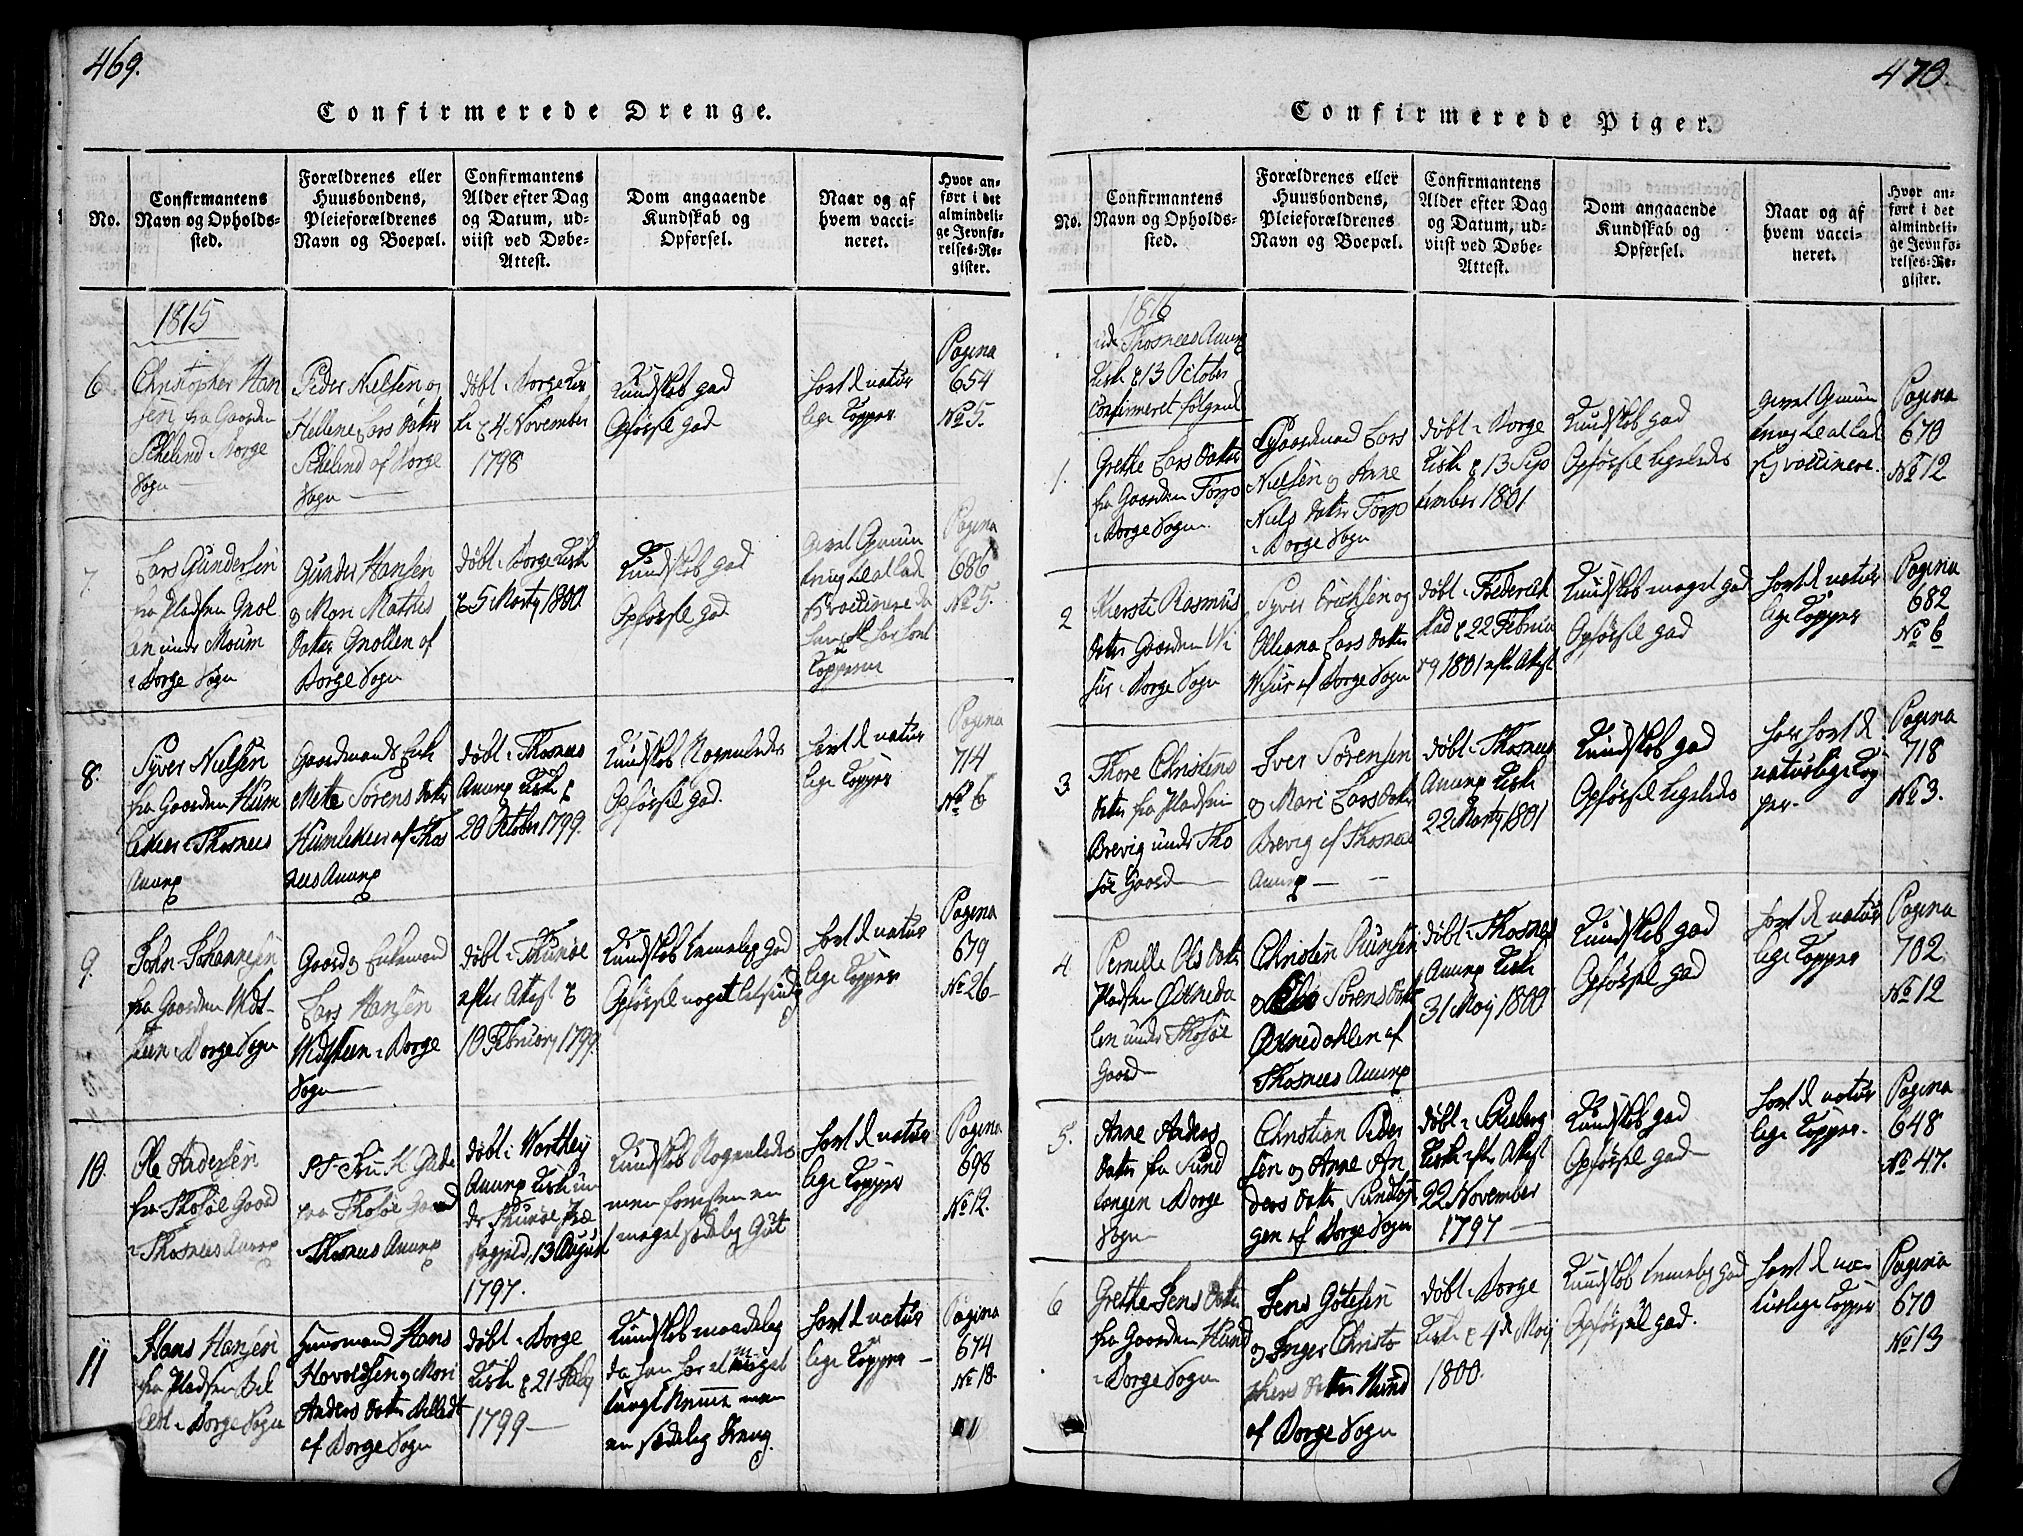 469.
Confirmerede Drenge.
No.
Confirmantens
Navn og Opholds-
sted.
Forældrenes eller
Huusbondens,
Pleieforældrenes
Navn og Boepæl.
Confirmantens
Alder efter Dag
og Datum, ud-
viist ved Døbe-
Attest.
Dom angaaende
Kundskab og
Opførsel.
Naar og af
hvem vacci-
neret.
Hvor an-
ført i det
almindeli-
ge Jevnfø-
relses-Re-
gister.
1815
6
Christopher Han
sen fra Gaarden
Borge
Sogn
Peder Nielsen og
Hellene Lars Datter
af Borge
Sogn
døbt i Borge Kir
ke d 4 November
1798
Kundskab god
Opførsel god
havt de natur
lige Kopper
Pagina
654
No 5.
7.
Lars Gundersen
fra Pladsen Gnol
len under Moum
i Borge Sogn
Gunder Hansen
og Mari Mathis
Datter Gnollen af
Borge Sogn
døbt i Borge Kirk
d 5 Marty 1800
Kundskab god
Opførsel god
Kopperne
Pagina
686
No 5.
8.
Syver Nielsen
fra Gaarden Hum
lekier i Thosnees
Annex
Gaardmands Enke
Mette Sørens Datter
Humlekier af Thos
nees Annex
døbt i Thosnees
Annex Kirk d
20 October 1799.
Kundskab Nogenledes
Opførsel god.
havt de natur
lige Kopper
Pagina
714
No 6
9.
John Johannesen
fra Gaarden Vidt-
steen i Borge Sogn
Gaard og Enkemand
Lars Hansen
Vidsteen i Borge
Sogn
døbt i Thunøe
efter Attest d
10 February 1799.
Kundskab temmelig god
Opførsel noget letsindig
havt de natur
lige Kopper
Pagina
679
No 26
10.
Ole Andersen
fra Thosøe Gaard
i Thosnees Annex
fra Thosøe Gaard
i Thosnees Annex
døbt i
Annex Kirk un
der Thunøe Præ
stegjeld, 13 August
1797.
Kundskab Nogenledes
men forresten en
meget sædelig Gut
havt de natur
lige Kopper
Pagina
698
No 12.
11
Hans Hansen
fra Pladsen Bil
let i Borge Sogn
Huusmand Hans
Haraldsen og Mari
Anders Datter Billedt
af Borge Sogn
døbt i Borge
Kirk d 21 July
1799
Kundskab maadelig
da han har et meget
tungt Nemme men
en sædelig Dreng.
havt de natur
lige Kopper
Pagina
674
No 18.
470.
Confirmerede Piger.
No.
Confirmantens
Navn og Opholds-
sted.
Forældrenes eller
Huusbondens,
Pleieforældrenes
Navn og Boepæl.
Confirmantens
Alder efter Dag
og Datum, ud-
viist ved Døbe-
Attest.
Dom angaaende
Kundskab og
Opførsel.
Naar og af
hvem vacci-
neret.
Hvor an-
ført i det
almindeli-
ge Jevnfø-
relses-Re-
gister.
1816
udi Thosnees Annex
Kirk d 13 October
Confirmeret følgende
1.
Grethe Lars Datter
fra Gaarden Torp
i Borge Sogn.
Gaardmand Lars
Nielsen og Anne
Niels Datter Torp
i Borge Sogn
døbt i Borge
Kirk d 13 Sep
tember 1801
Kundskab god
Opførsel ligeledes
Pagina
670
No 12
2
Kersti Rasmus
Datter Gaarden Vi
sur i Borge Sogn
Syver Erichsen og
Oleana Lars Datter
Visur af Borge Sogn
døbt i Frederich
stad d 22 Februa
ry 1801 efter Attest
Kundskab meget god
Opførsel god
havt de natur
lige Kopper
Pagina
682
No 6
3
Thore Christens
Datter fra Pladsen
Brevig under Tho
søe Gaard
Iver Sørensen
og Mari Lars Datter
Brevig af Thosnees
Annex
døbt i Thosnees
Annex Kirk
22 Marty 1801
Kundskab god
Opførsel ligeledes
har havt de
naturlige Kop
per
Pagina
718
No 3.
4
Pernille Ols Datter
Pladsen Oxneda
len under Thosøe
Gaard
Christen
og Sørens Datter
Oxnedahlen af
Thosnees Annex
døbt i Thosnees
Annex Kirk
31 Maij 1800
Kundskab god
Opførsel god
havt de natur
lige Kopper
Pagina
702
No 12
5.
Anne Anders
Datter fra Sund
longen i Borge
Sogn
Christian Peder
sen og Anne An
ders Datter Sundlon
gen af Borge Sogn
døbt i
Kirk efter Attest
22 November
1797
Kundskab god
Opførsel god
havt de natur
lige Kopper
Pagina
648
No 47.
6
Grethe Jens Datter
fra Gaarden Hund
i Borge Sogn
Jens Gøtesen
og Inger Christo
phers Datter Hund
af Borge Sogn
døbt i Borge
Kirk d 4de Maij
1800.
Kundskab temmelig god
Opførsel god.
havt de na
turlige Kopper
Pagina
670
No 13